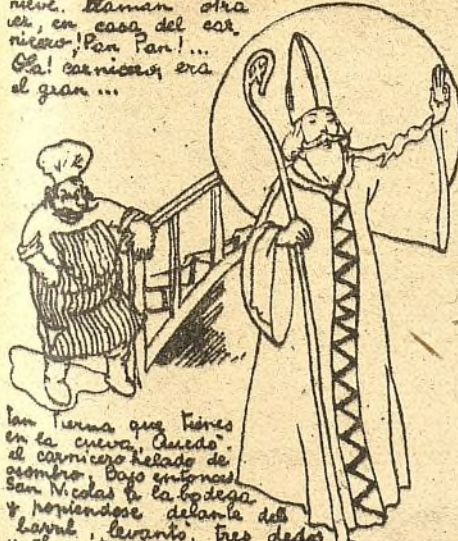 nieve. Llaman otra
vez, en casa del car-
nicero; Pan Pan!...
Ola! carnicero, era
el gran ...
tan tierna que tienes
en la cueva, Quedo
el carnicero helado de
asombro. Bajo entonces
San Nicolas a la bodega
y poniendose delante del
barril, levantó tres dedos